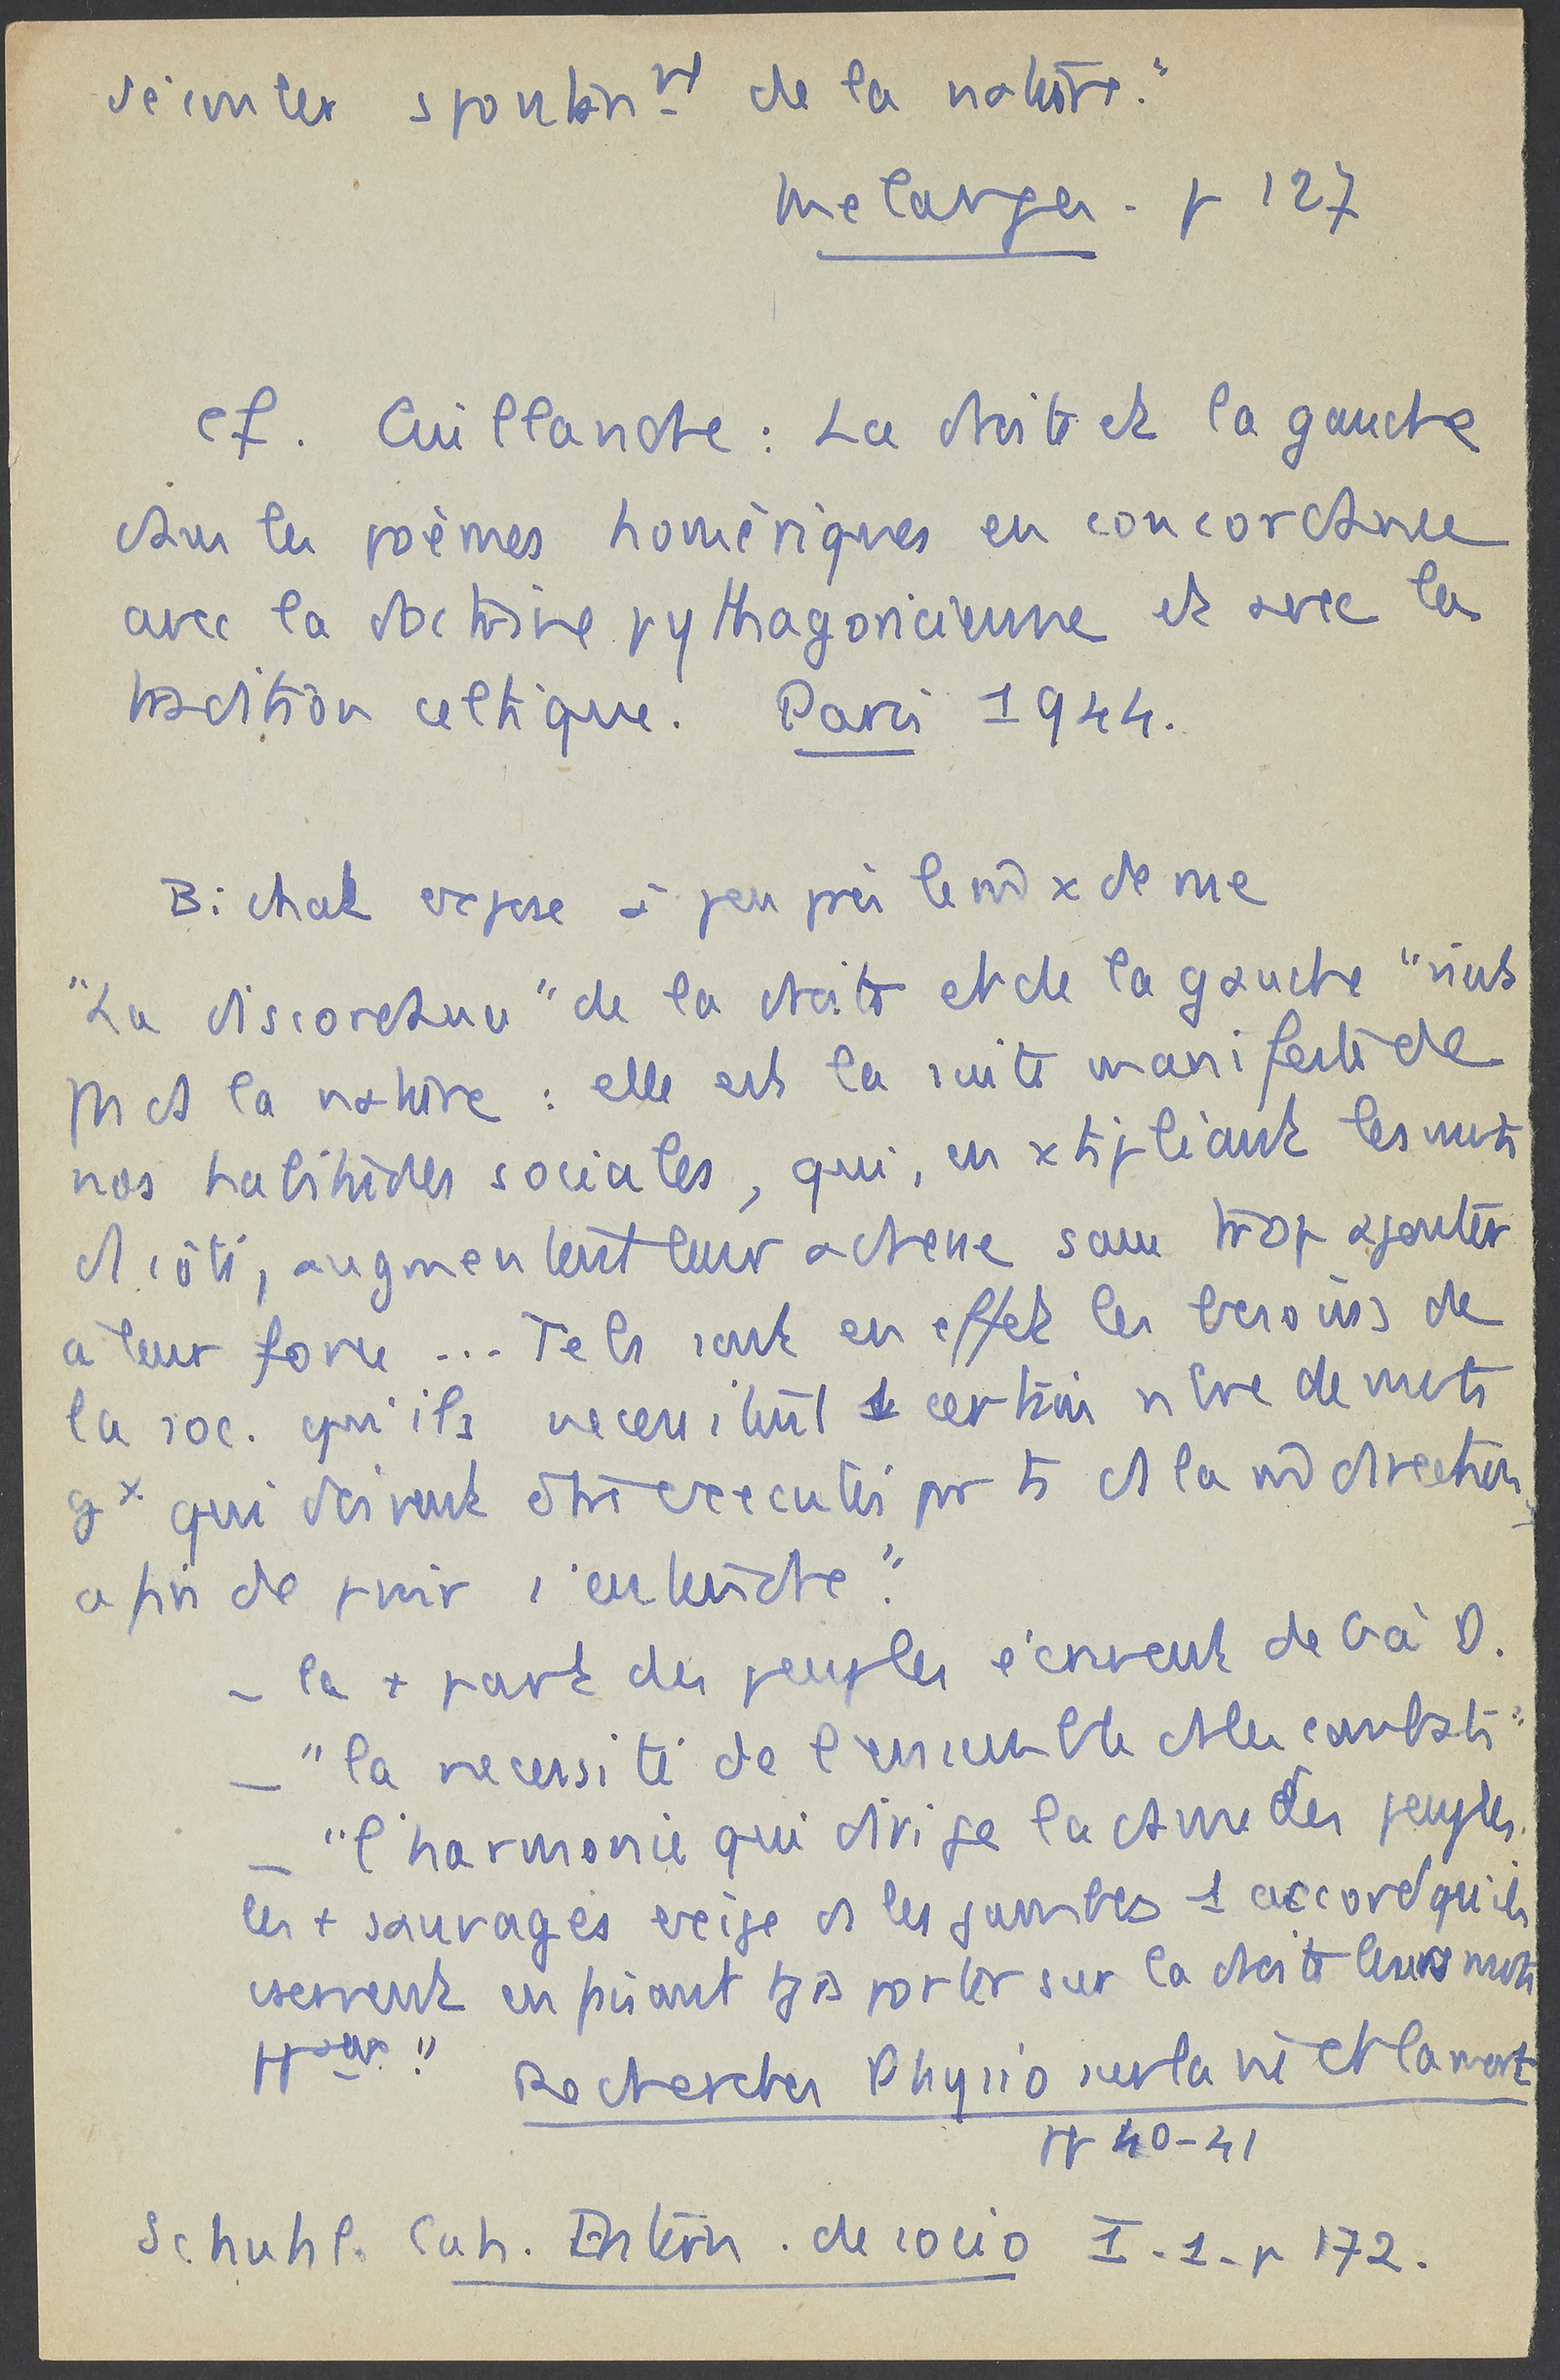 découler spontanmt de la nature."
Melanges. p 127
cf. Cuillandre : La droite et la gauche
dans les poèmes homériques en concordance
avec la doctrine pythagoricienne et avec la
tradition celtique. Paris 1944.
Bichat expose à peu près le m̂ x de vue
"La discordance" de la droite et de la gauche "n'est
pas ds la nature : elle est la suite manifeste de
nos habitudes sociales, qui, en xtipliant les mvts
d. côté, augmentent leur adresse sans trop ajouter
à leur force ... Tels sont en effet les besoins de
la soc. qu'ils necessitent 1 certain nbre de mvts
gx qui doivent être executés pr ts ds la m̂ direction,
afin de pvoir s'entendre."
_ la + part des peuples écrivent de G à D.
_ "la necessité de l'ensemble ds les combats"
_ "l'harmonie qui dirige la danse des peuples
les + sauvages exige ds les jambes 1 accord qu'ils
exercent en faisant tjrs porter sur la droite leurs mvts
ppaux."
Recherches Physio sur la vie et la mort
pp 40-41
Schuhl. Cah. Intern. de socio I-1-p 172.